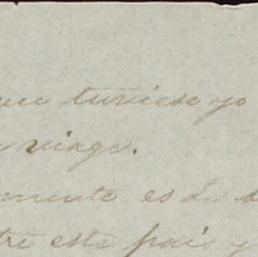 que tuviese yo
viage.
mente es de
tre este pais y